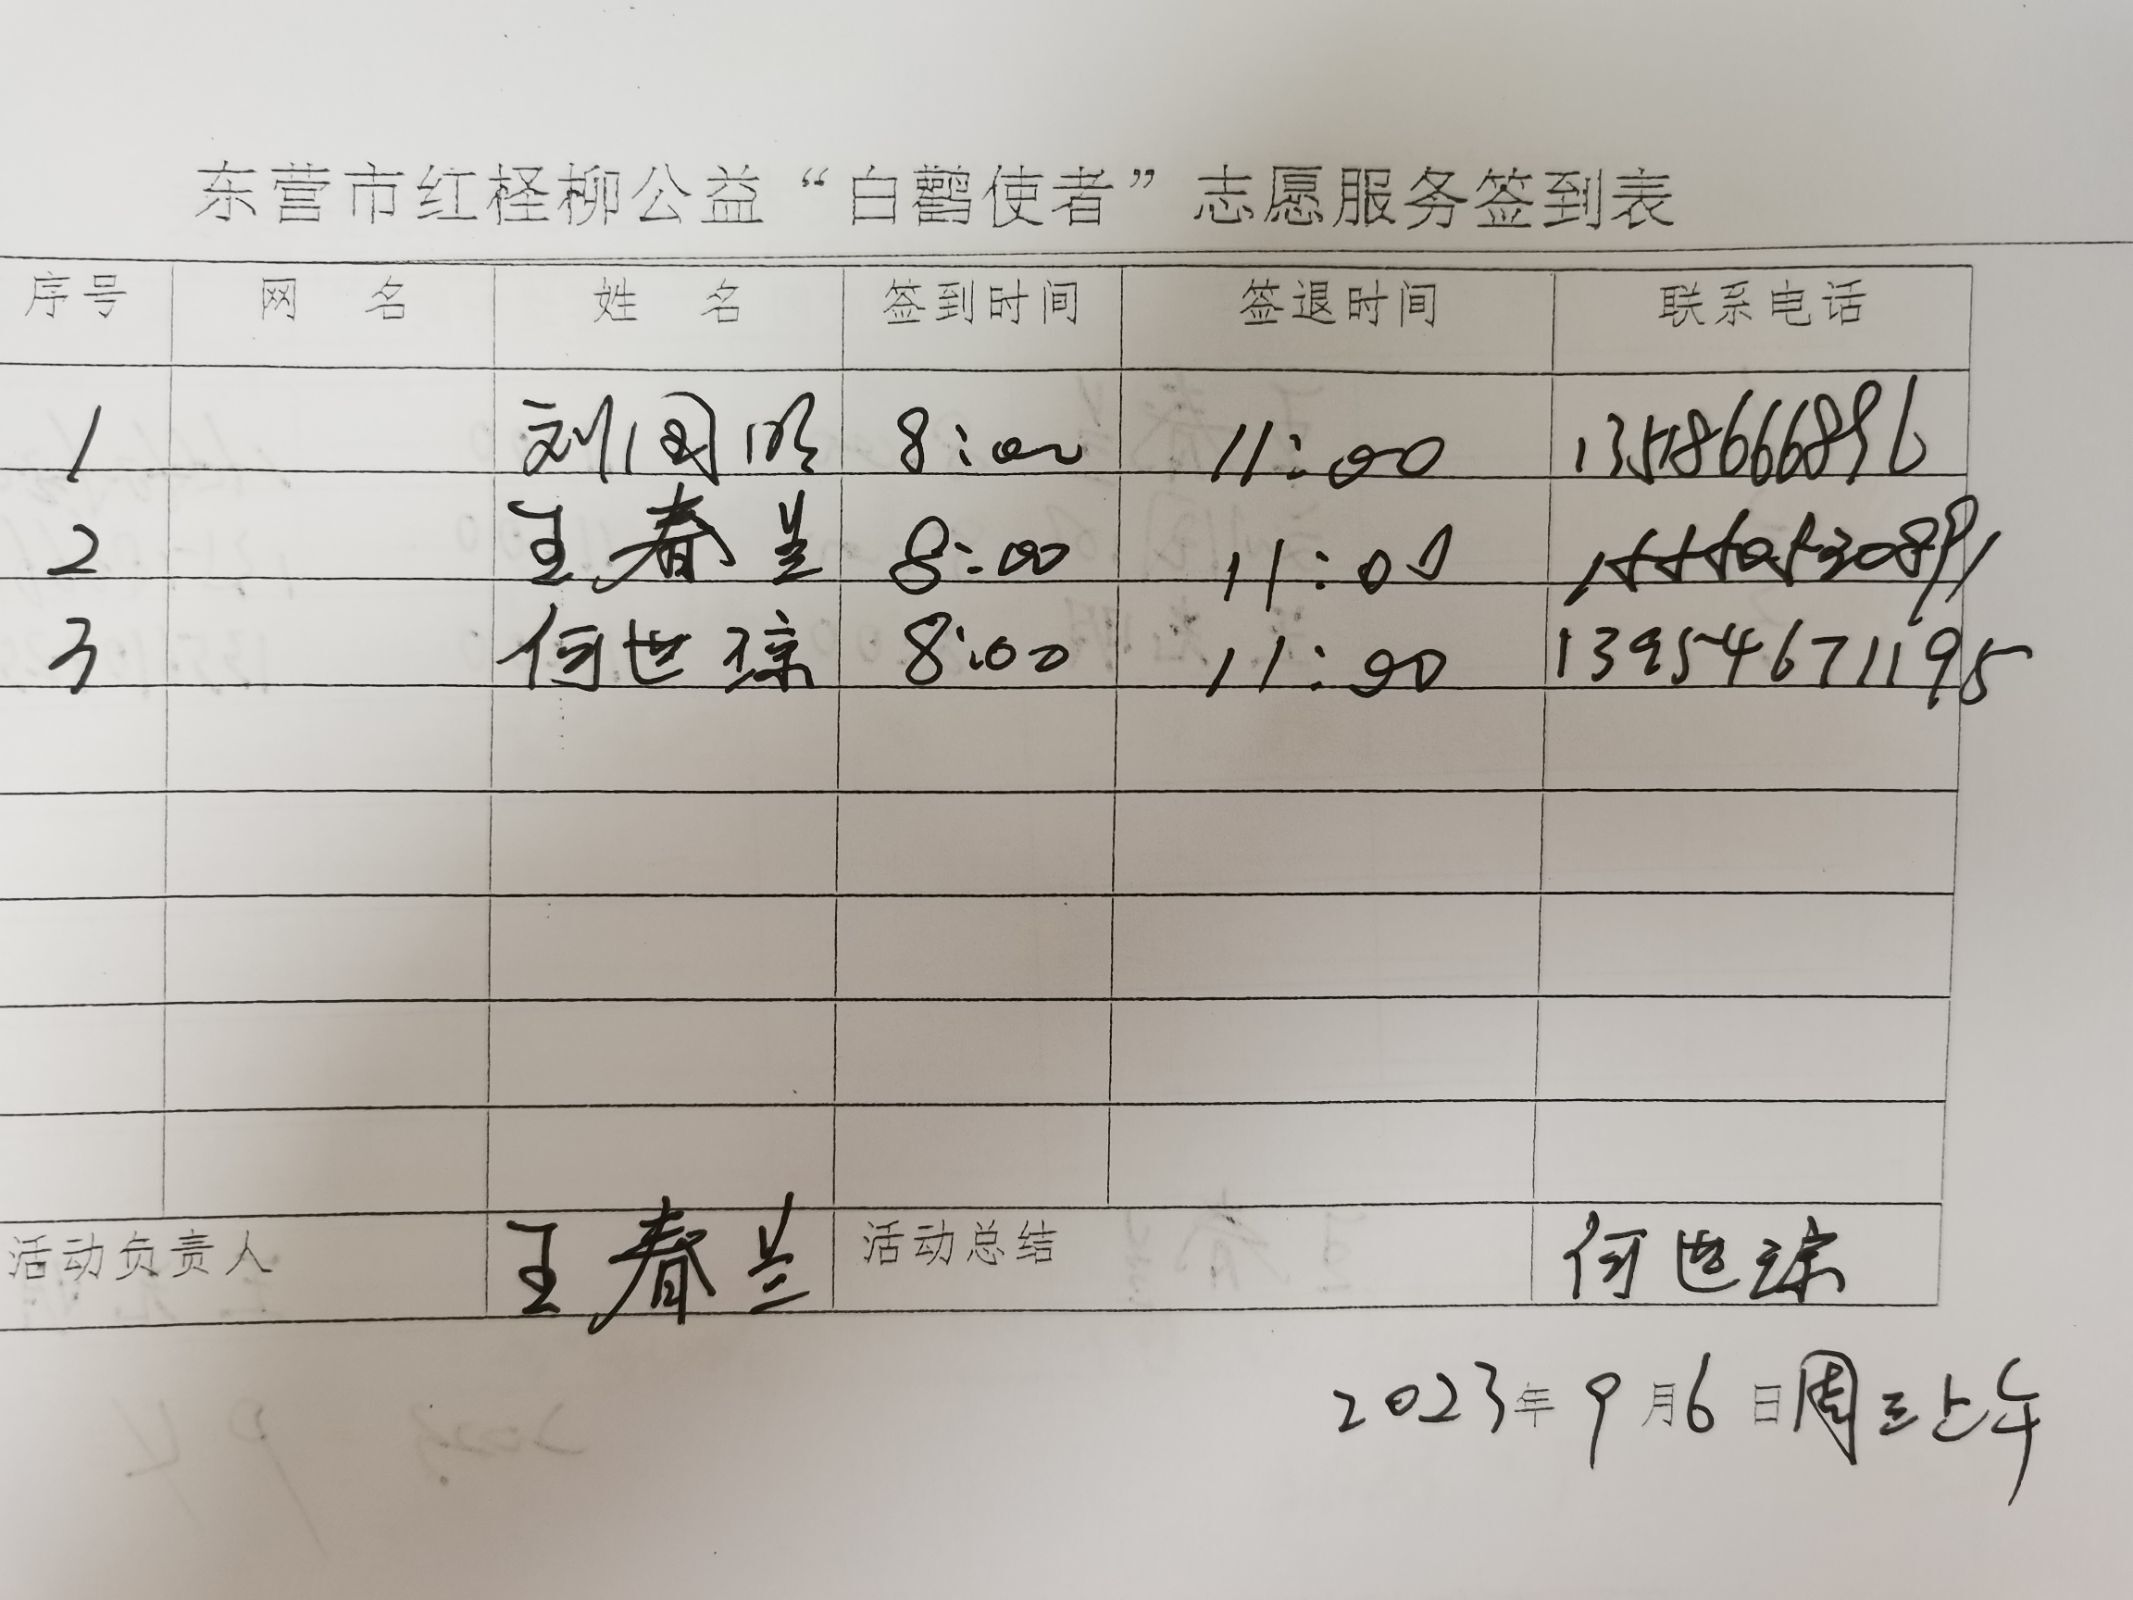 东营市红柽柳公益“白鹳使者”志愿服务签到表
序号 网 名 姓 名 签到时间 签退时间 联系电话
1 刘国明 8:00 11:00
2 王春兰 8:00 11:00
3 何世琼 8:00 11:00 13954671195
活动负责人 王春兰 活动总结 何世琼
2023年9月6日周三上午